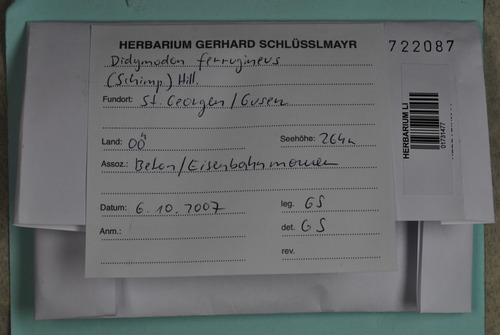 HERBARIUM GERHARD SCHLÜSSLMAYR
722087
Didymodon ferrugineus
(Schimp.) Hill.
Fundort: St. Georgen/Gusen
Land: OÖ Seehöhe: 264m
Assoz.: Beton/Eisenbahnmauer
Datum: 6.10.2007 leg. GS
Anm.: det. GS
rev.
HERBARIUM LI
01731477